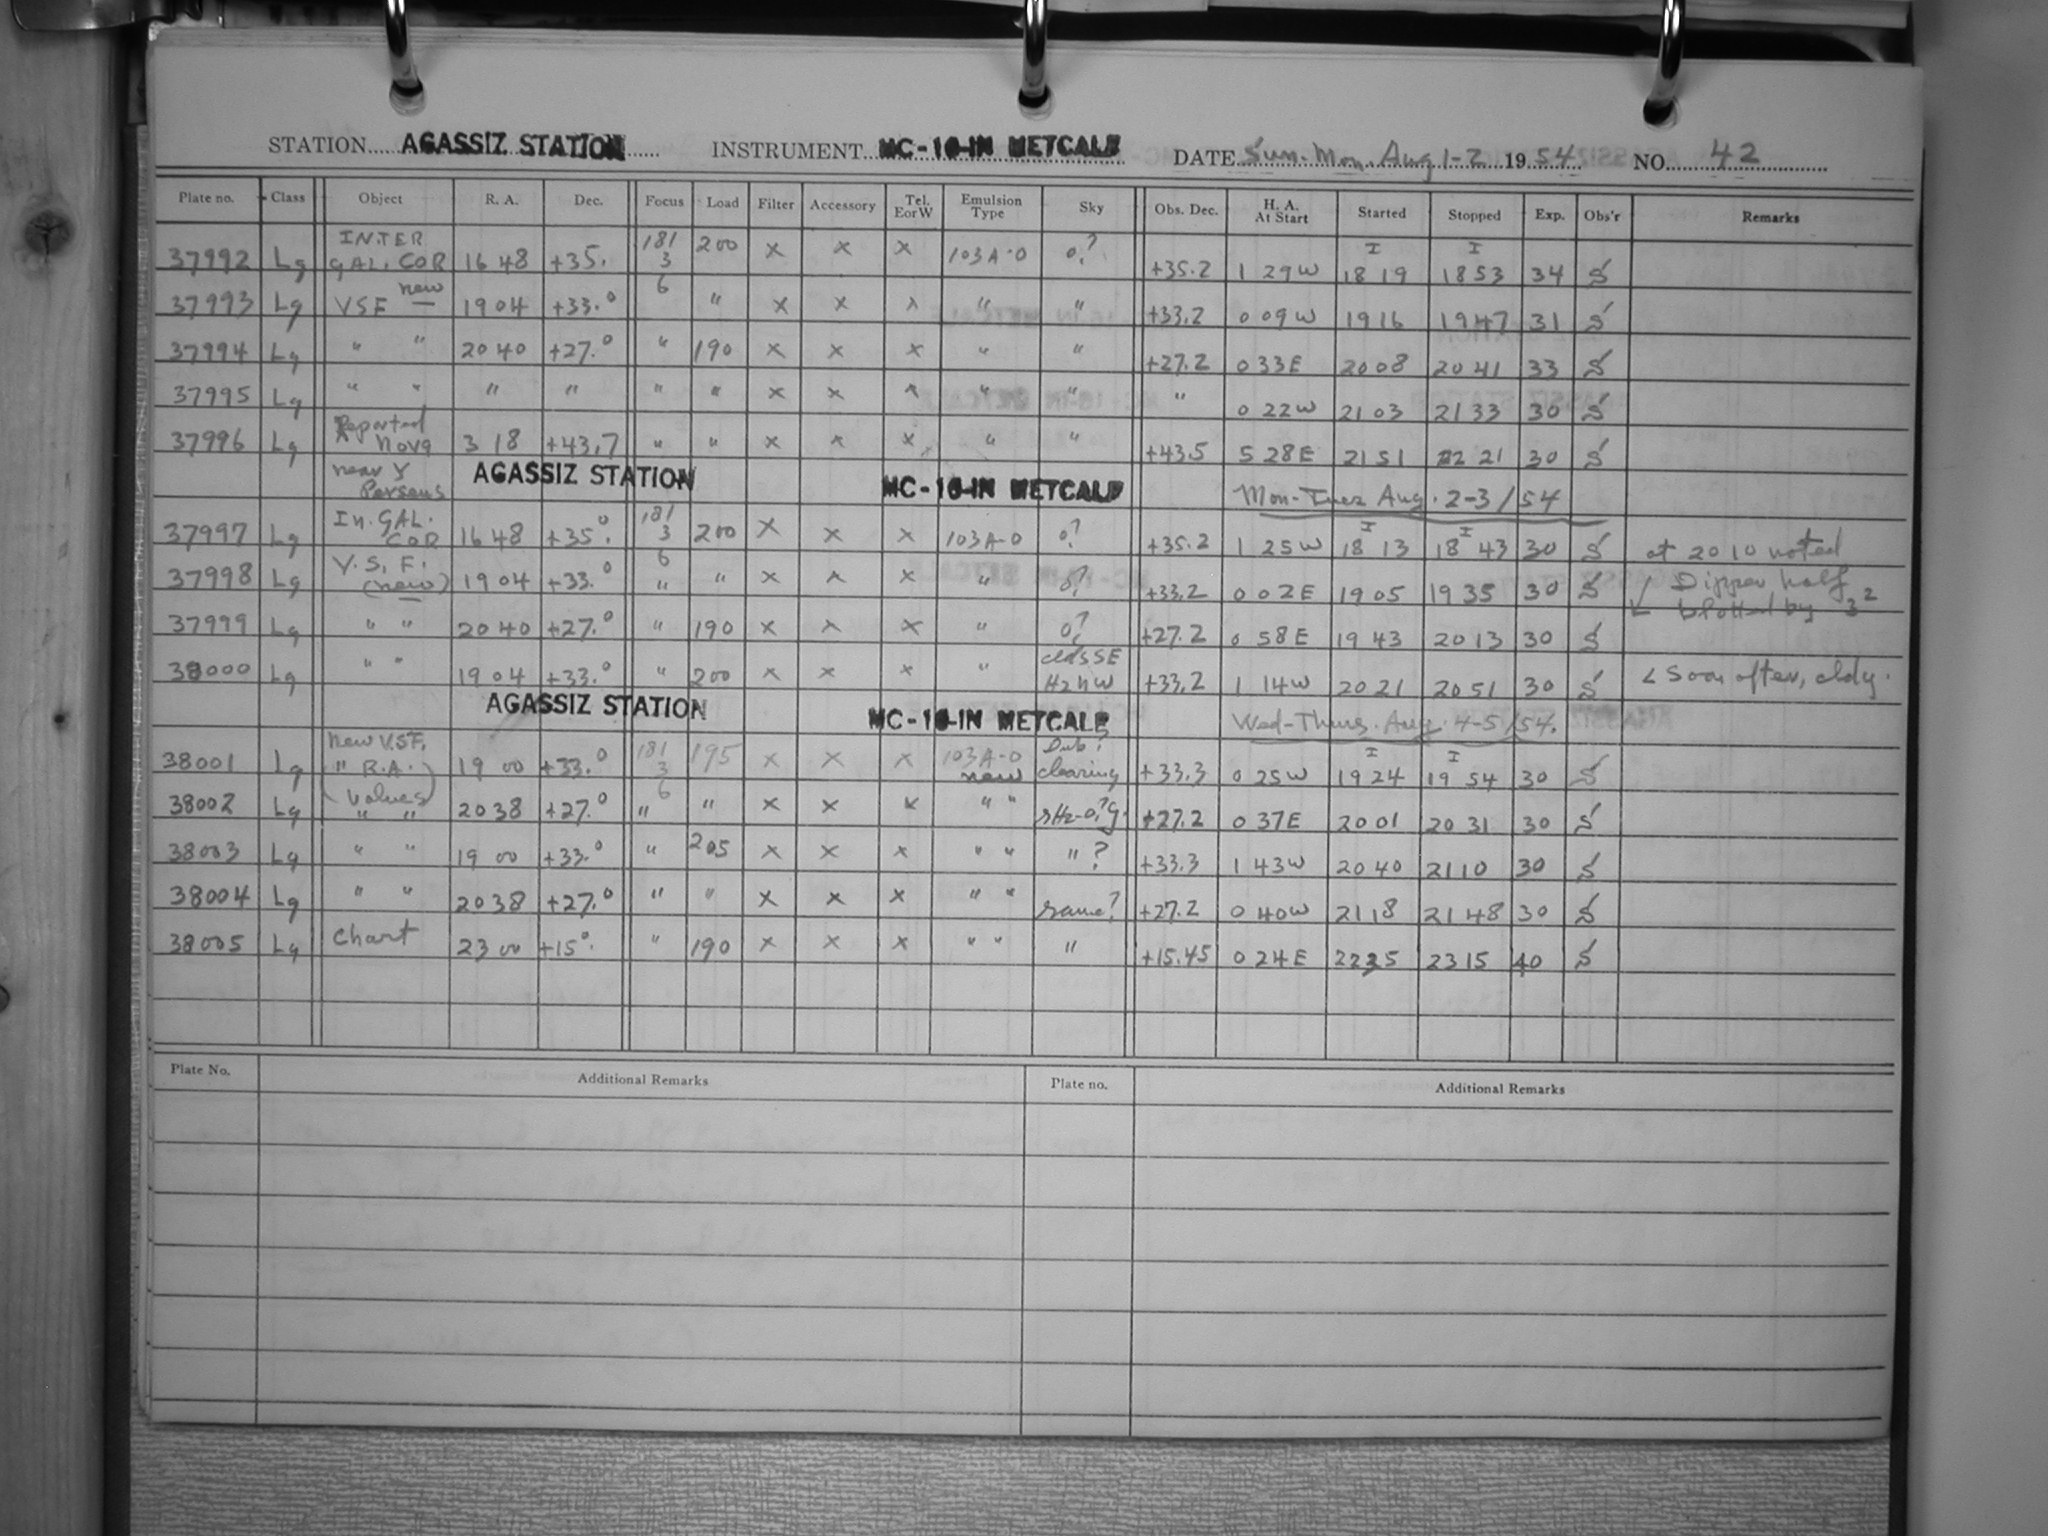 STATION AGASSIZ STATION INSTRUMENT MC-16-IN METCALF DATE Sun-Mon. Aug 1-2 1954 NO. 42
Plate no. Class Object R. A. Dec. Focus Load Filter Accessory Tel. E or W Emulsion Type Sky Obs. Dec. H. A. At Start Started Stopped Exp. Obs'r Remarks
37992 Lg INTER GAL. COR 16 48 +35. 181 3 6 200 × × × 103A-O 0? +35.2 1 29W I 18 19 I 18 53 34 S
37993 Lg VSF new 19 04 +33.° " × × × " " +33.2 0 09W 19 16 19 47 31 S
37994 Lg " " 20 40 +27.° " 190 × × × " " +27.2 0 33E 20 08 20 41 33 S
37995 Lg " " " " " " × × × " " " 0 22W 21 03 21 33 30 S
37996 Lg Reported Nova 3 18 +43.7 " " × × × " " +43.5 5 28E 21 51 22 21 30 S
near γ Perseus AGASSIZ STATION MC-16-IN METCALF Mon-Tues Aug. 2-3/54
37997 Lg In. GAL. COR 16 48 +35.° 181 3 6 200 × × × 103A-O 0? +35.2 1 25W I 18 13 I 18 43 30 S at 2010 noted
37998 Lg V.S.F. (new) 19 04 +33.° " " × × × " 0? +33.2 0 02E 19 05 19 35 30 S Dipper half
37999 Lg " " 20 40 +27.° " 190 × × × " 0? +27.2 0 58E 19 43 20 13 30 S blotted by 3²
38000 Lg " " 19 04 +33.° " 200 × × × " clds SE Hz NW +33.2 1 14W 20 21 20 51 30 S < Soon after, cldy.
AGASSIZ STATION MC-16-IN METCALF Wed-Thurs. Aug. 4-5/54.
38001 Lg New V.SF. " R.A. 19 00 +33.° 181 3 6 195 × × × 103A-O new Dub? clearing +33.3 0 25W I 19 24 I 19 54 30 S
38002 Lg (values) " " 20 38 +27.° " " × × × " " +27.2 0 37E 20 01 20 31 30 S
38003 Lg " " 19 00 +33.° " 205 × × × " " " ? +33.3 1 43W 20 40 21 10 30 S
38004 Lg " " 20 38 +27.° " " × × × " " same? +27.2 0 40W 21 18 21 48 30 S
38005 Lg Chart 23 00 +15°. " 190 × × × " " " +15.45 0 24E 22 35 23 15 40 S
Plate No. Additional Remarks Plate no. Additional Remarks